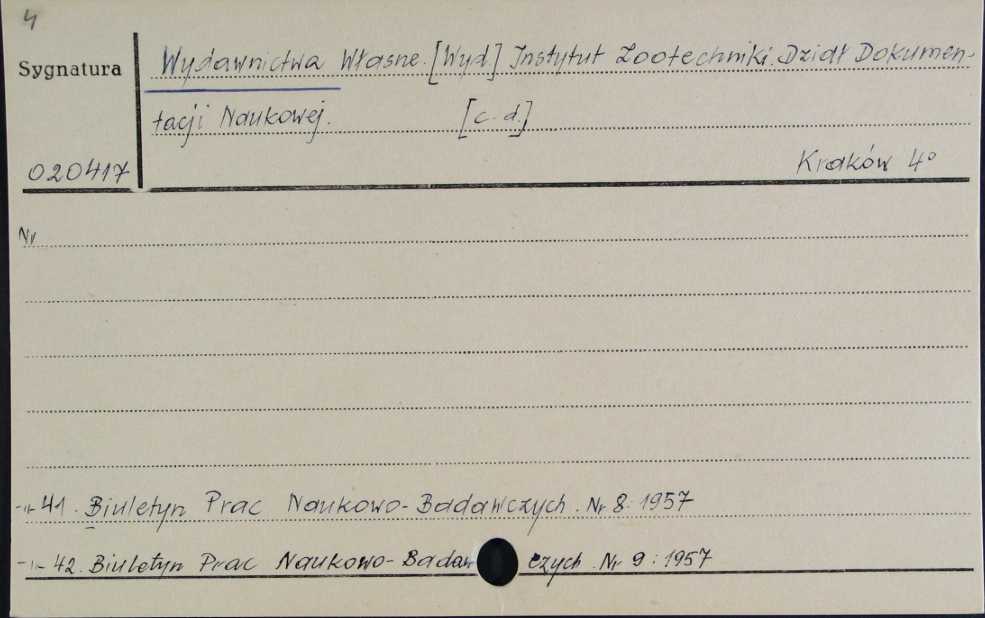 4
Sygnatura
Wydawnictwa Własne. [Wyd.] Instytut Zootechniki. Dział Dokumen-
tacji Naukowej. [c. d.]
020417
Kraków 4°
Nr
-"- 41. Biuletyn Prac Naukowo-Badawczych. Nr 8: 1957
-"- 42. Biuletyn Prac Naukowo-Badaw czych. Nr 9: 1957